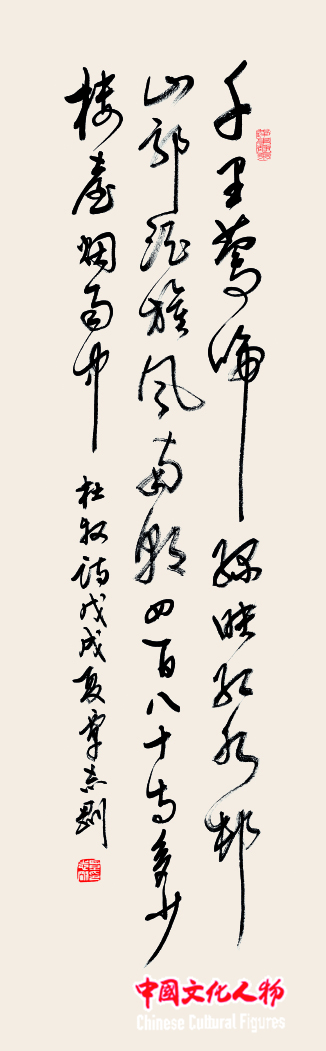 千里鶯啼綠映紅水邨
山郭酒旗風南朝四百八十寺多少
樓臺烟雨中
杜牧詩戊戌夏覃志剛
中國文化人物
Chinese Cultural Figures